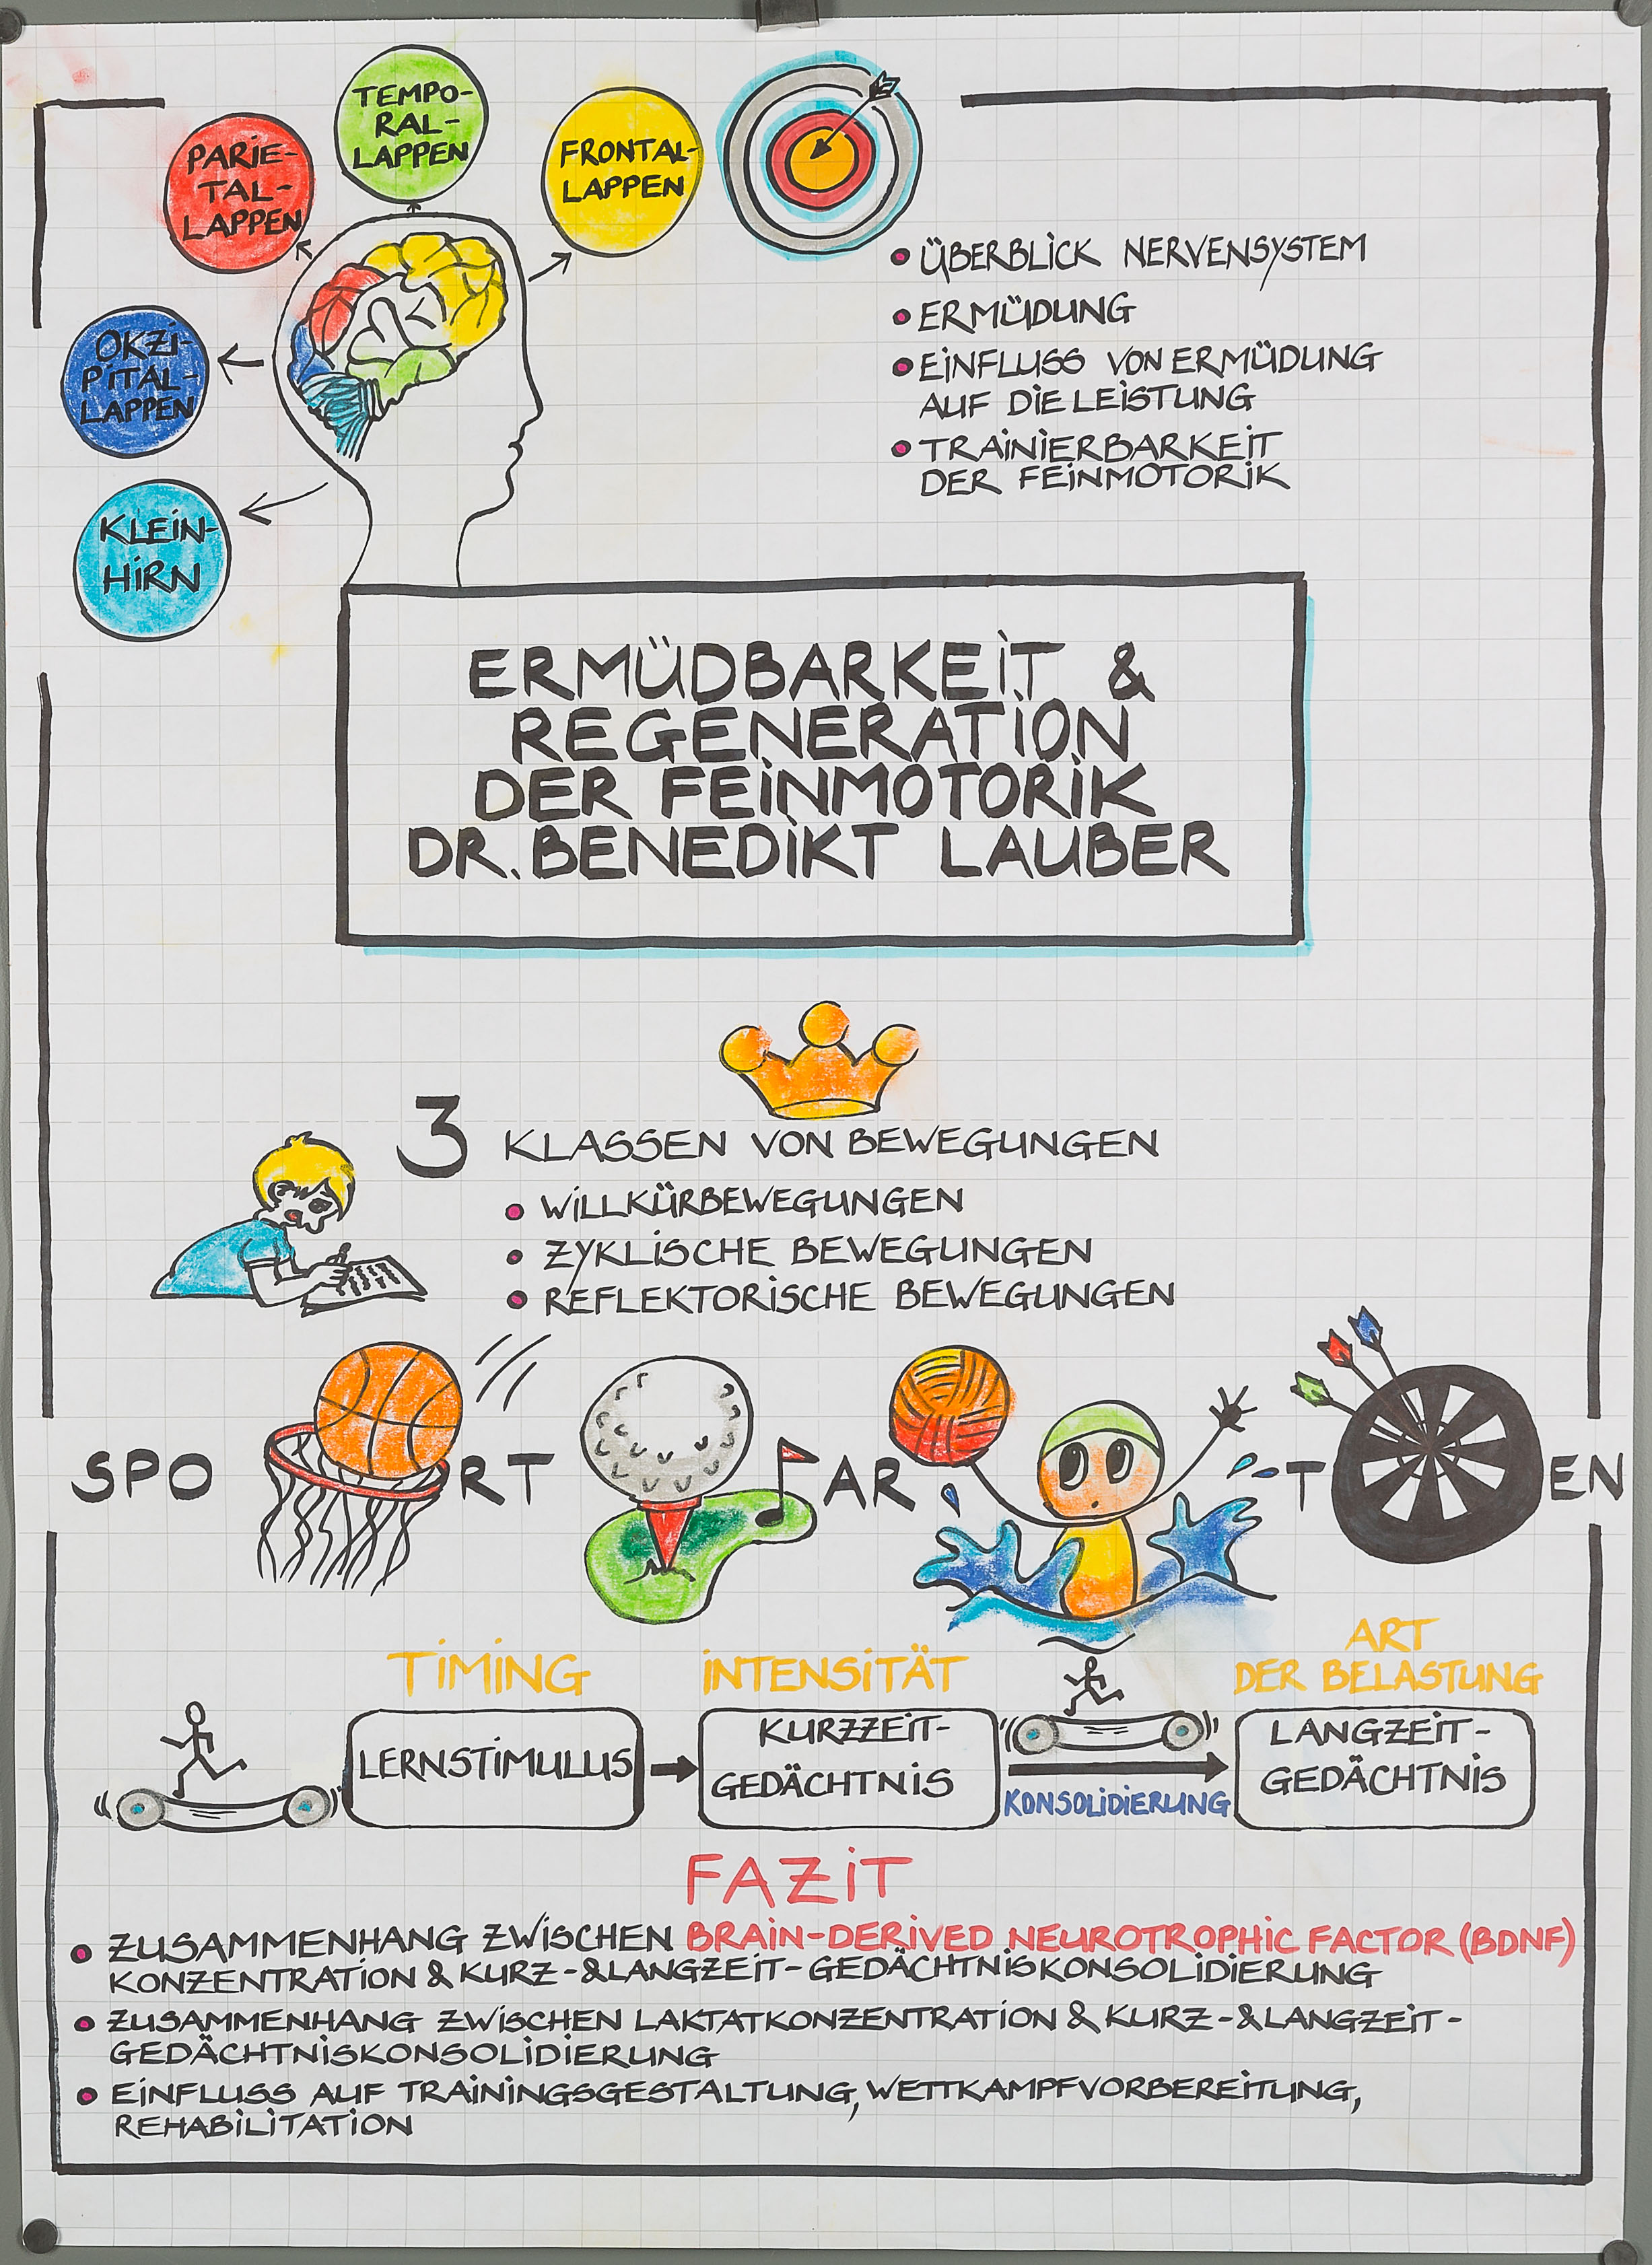 TEMPO-
RAL-
LAPPEN
PARIE-
TAL-
LAPPEN
FRONTAL-
LAPPEN
OKZI-
PITAL-
LAPPEN
KLEIN-
HIRN
• ÜBERBLICK NERVENSYSTEM
• ERMÜDUNG
• EINFLUSS VON ERMÜDUNG
AUF DIE LEISTUNG
• TRAINIERBARKEIT
DER FEINMOTORIK
ERMÜDBARKEIT &
REGENERATION
DER FEINMOTORIK
DR. BENEDIKT LAUBER
3 KLASSEN VON BEWEGUNGEN
• WILLKÜRBEWEGUNGEN
• ZYKLISCHE BEWEGUNGEN
• REFLEKTORISCHE BEWEGUNGEN
SPO RT AR T EN
TIMING
LERNSTIMULUS
INTENSITÄT
KURZZEIT-
GEDÄCHTNIS
KONSOLIDIERUNG
ART
DER BELASTUNG
LANGZEIT-
GEDÄCHTNIS
FAZIT
• ZUSAMMENHANG ZWISCHEN BRAIN-DERIVED NEUROTROPHIC FACTOR (BDNF)
KONZENTRATION & KURZ- & LANGZEIT-GEDÄCHTNISKONSOLIDIERUNG
• ZUSAMMENHANG ZWISCHEN LAKTATKONZENTRATION & KURZ- & LANGZEIT-
GEDÄCHTNISKONSOLIDIERUNG
• EINFLUSS AUF TRAININGSGESTALTUNG, WETTKAMPFVORBEREITUNG,
REHABILITATION